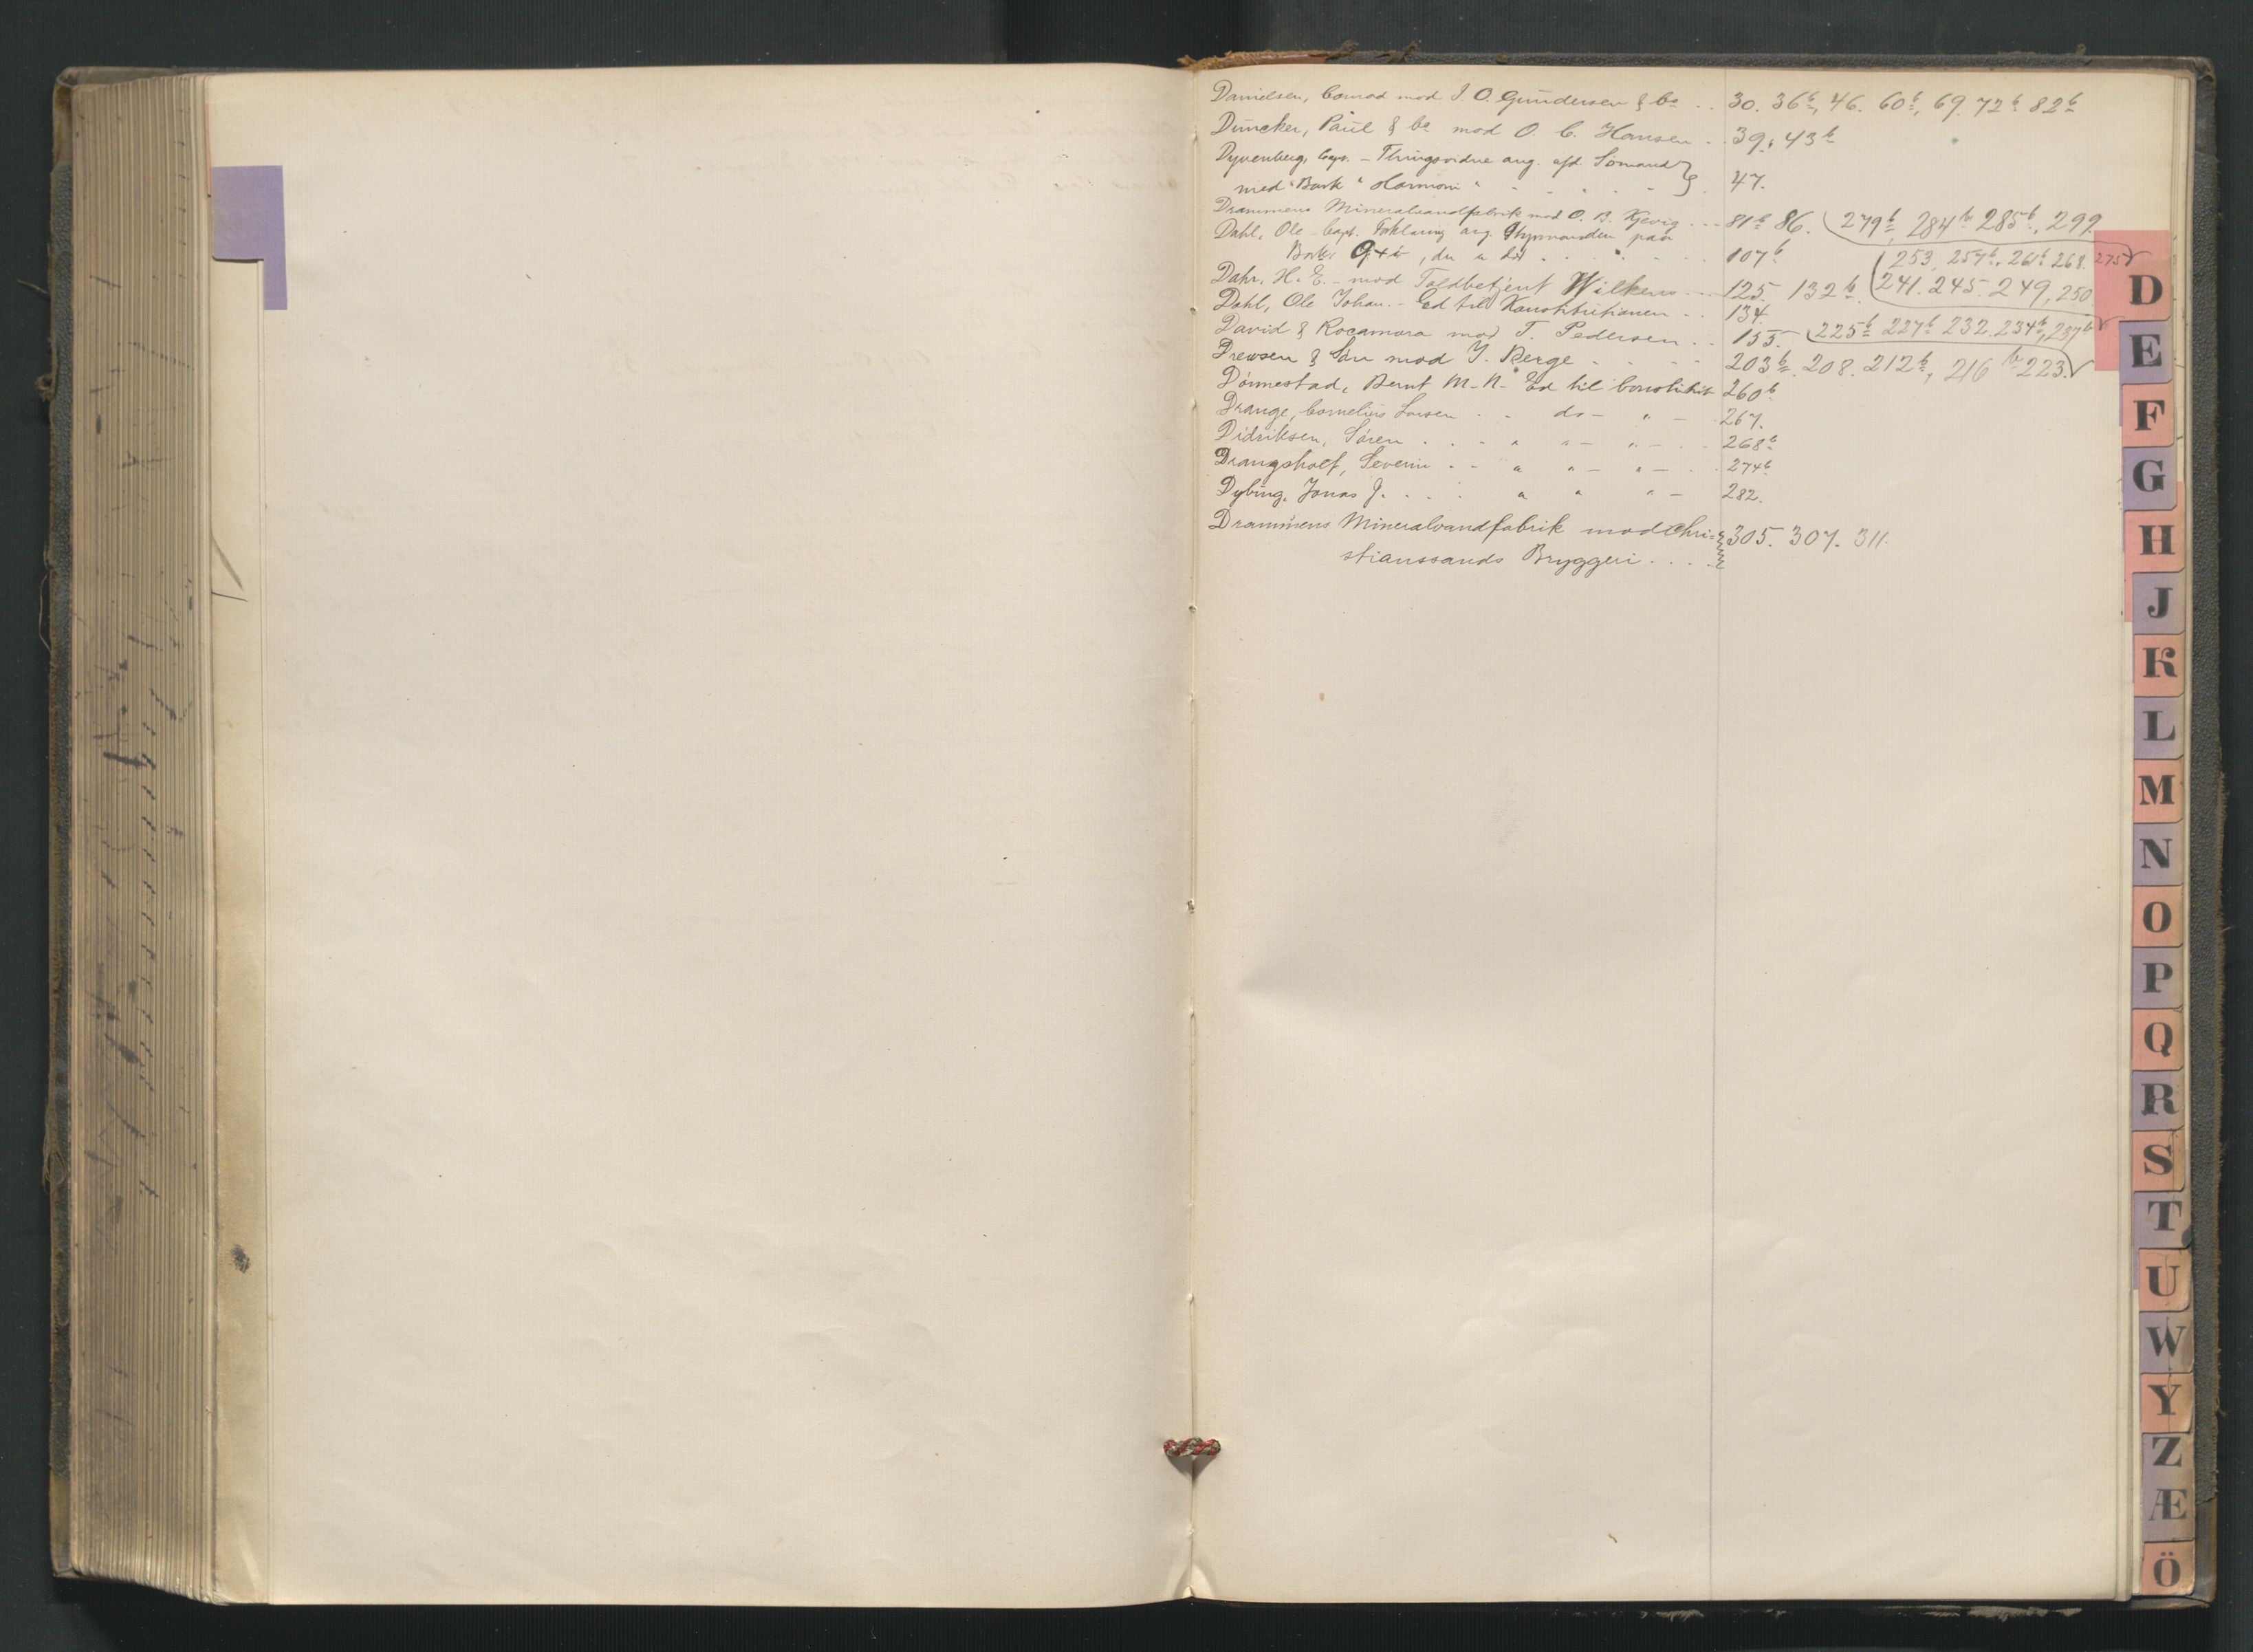 Danielsen, Conrad mod J. O. Gundersen & Co .. 30. 36b, 46. 60b, 69. 72b 82b
Duncker, Paul & Co mod O. C. Hansen .. 39, 43b
Dyvenberg, Capt. – Thingsvidne ang. afd Sømand
med "Bark" "Harmoni" . . . 47.
Drammens Mineralvandfabrik mod O. B. Kjevig ... 81b 86. 279b, 284b 285b, 299.
Dahl, Ole Capt. Forklaring ang. Styrmanden paa
Bark , der er død . . . 107b 253, 257b, 261b 268. 275
Dahr, H. E. – mod Toldbetjent Wilkens ... 125. 132b. 241. 245. 249, 250
Dahl, Ole Johan. – Ed til Konstitutionen .. 134.
David & Rocamora mod T. Pedersen .. 155. 225b 227b 232 234b, 237b
Drewsen & Søn mod J. Berge . . . 203b. 208. 212b, 216 b 223.
Dønnestad, Bernt M. N. Ed til Constitut 260b
Drange, Cornelius Larsen . . do – " – 267.
Didriksen, Søren . . . " " – " – 268b
Drangsholt, Severin . . " " – " – 274b
Dybing, Jonas J. . . . " " " – 282.
Drammens Mineralvandfabrik mod Chri= 305. 307. 311.
stianssands Bryggeri . . . .
D
E
F
G
H
J
K
L
M
N
O
P
Q
R
S
T
U
W
Y
Z
Æ
Ö